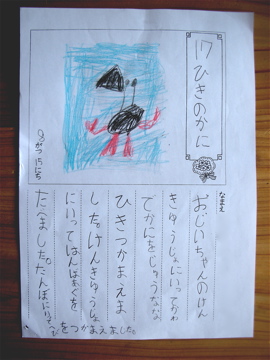 17ひきのかに
9がつ15にち
なまえ
おじいちゃんのけん
きゅうじょにいってかわ
でかにをじゅうなな
ひきつかまえま
した。けんきゅうじょ
にいってはんばあぐを
たべました。たんぼにいって
をつかまえました。